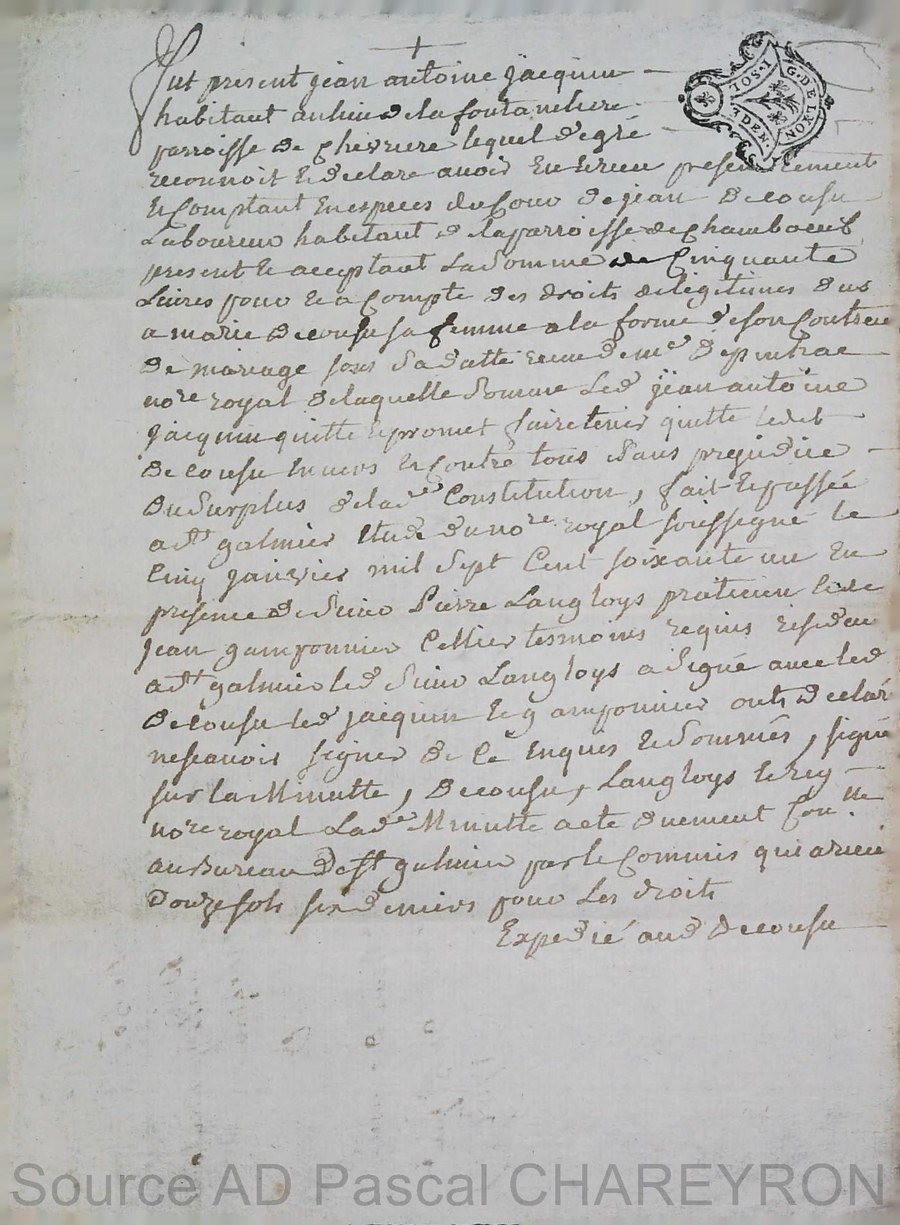 +
fut present jean antoine jacquin
habitant au lieu de la fontanchere
parroisse de Chevriere lequel de gré
reconnoit et declare avoir en et receu presentement
et Comptant en especes du Cour de jean Decousu
Laboureur habitant de la parroisse de Chamboeuf
present et acceptant La Somme de Cinquante
Livres pour et a Compte des droits de legitimes dus
a marie decousu sa femme a la forme de son Contract
de mariage sous sa datte receu de me
nore royal de laquelle Somme Led jean antoine
jacquin quitte et promet faire tenir quitte ledit
Decousu envers et Contre tous Sans prejudice
du Surplus de lade Constitution, fait et passé
a St galmier Etude du nore royal soussigné le
Cinq janvier mil Sept Cent soixante un En
presence de Sieur Pierre Langloys praticien et de
jean gamponnier Cellier tesmoins requis
a St galmier led Sieur Langloys a Signé avec led
Decousu led jacquin et gamponnier onts declaré
ne scavoir signer de Ce Enquis et Sommés, signé
sur La Minutte, Decousu, Langloys et
nore royal Lade Minutte a ete duement Conlle
au Bureau de St galmier par le Commis qui a receu
Douze sols six deniers pour Les droits
Expedié aud Decousu
G. DE LYON
I SOL
DEN.
Source AD Pascal CHAREYRON